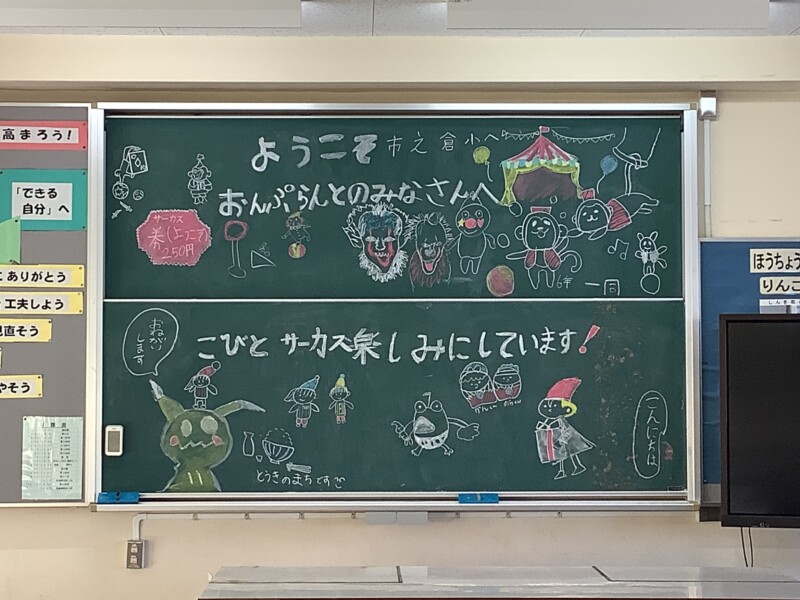 高まろう!
「できる
自分」へ
ありがとう
工夫しよう
見直そう
やそう
ようこそ 市之倉小へ
おんぷらんとのみなさんへ
サーカス
券(ようこそ)
250円
6年一同
おねがい
します
こびと サーカス楽しみにしています!
とうきのまちですぞ
こんにちは
ほうちょう
りんご